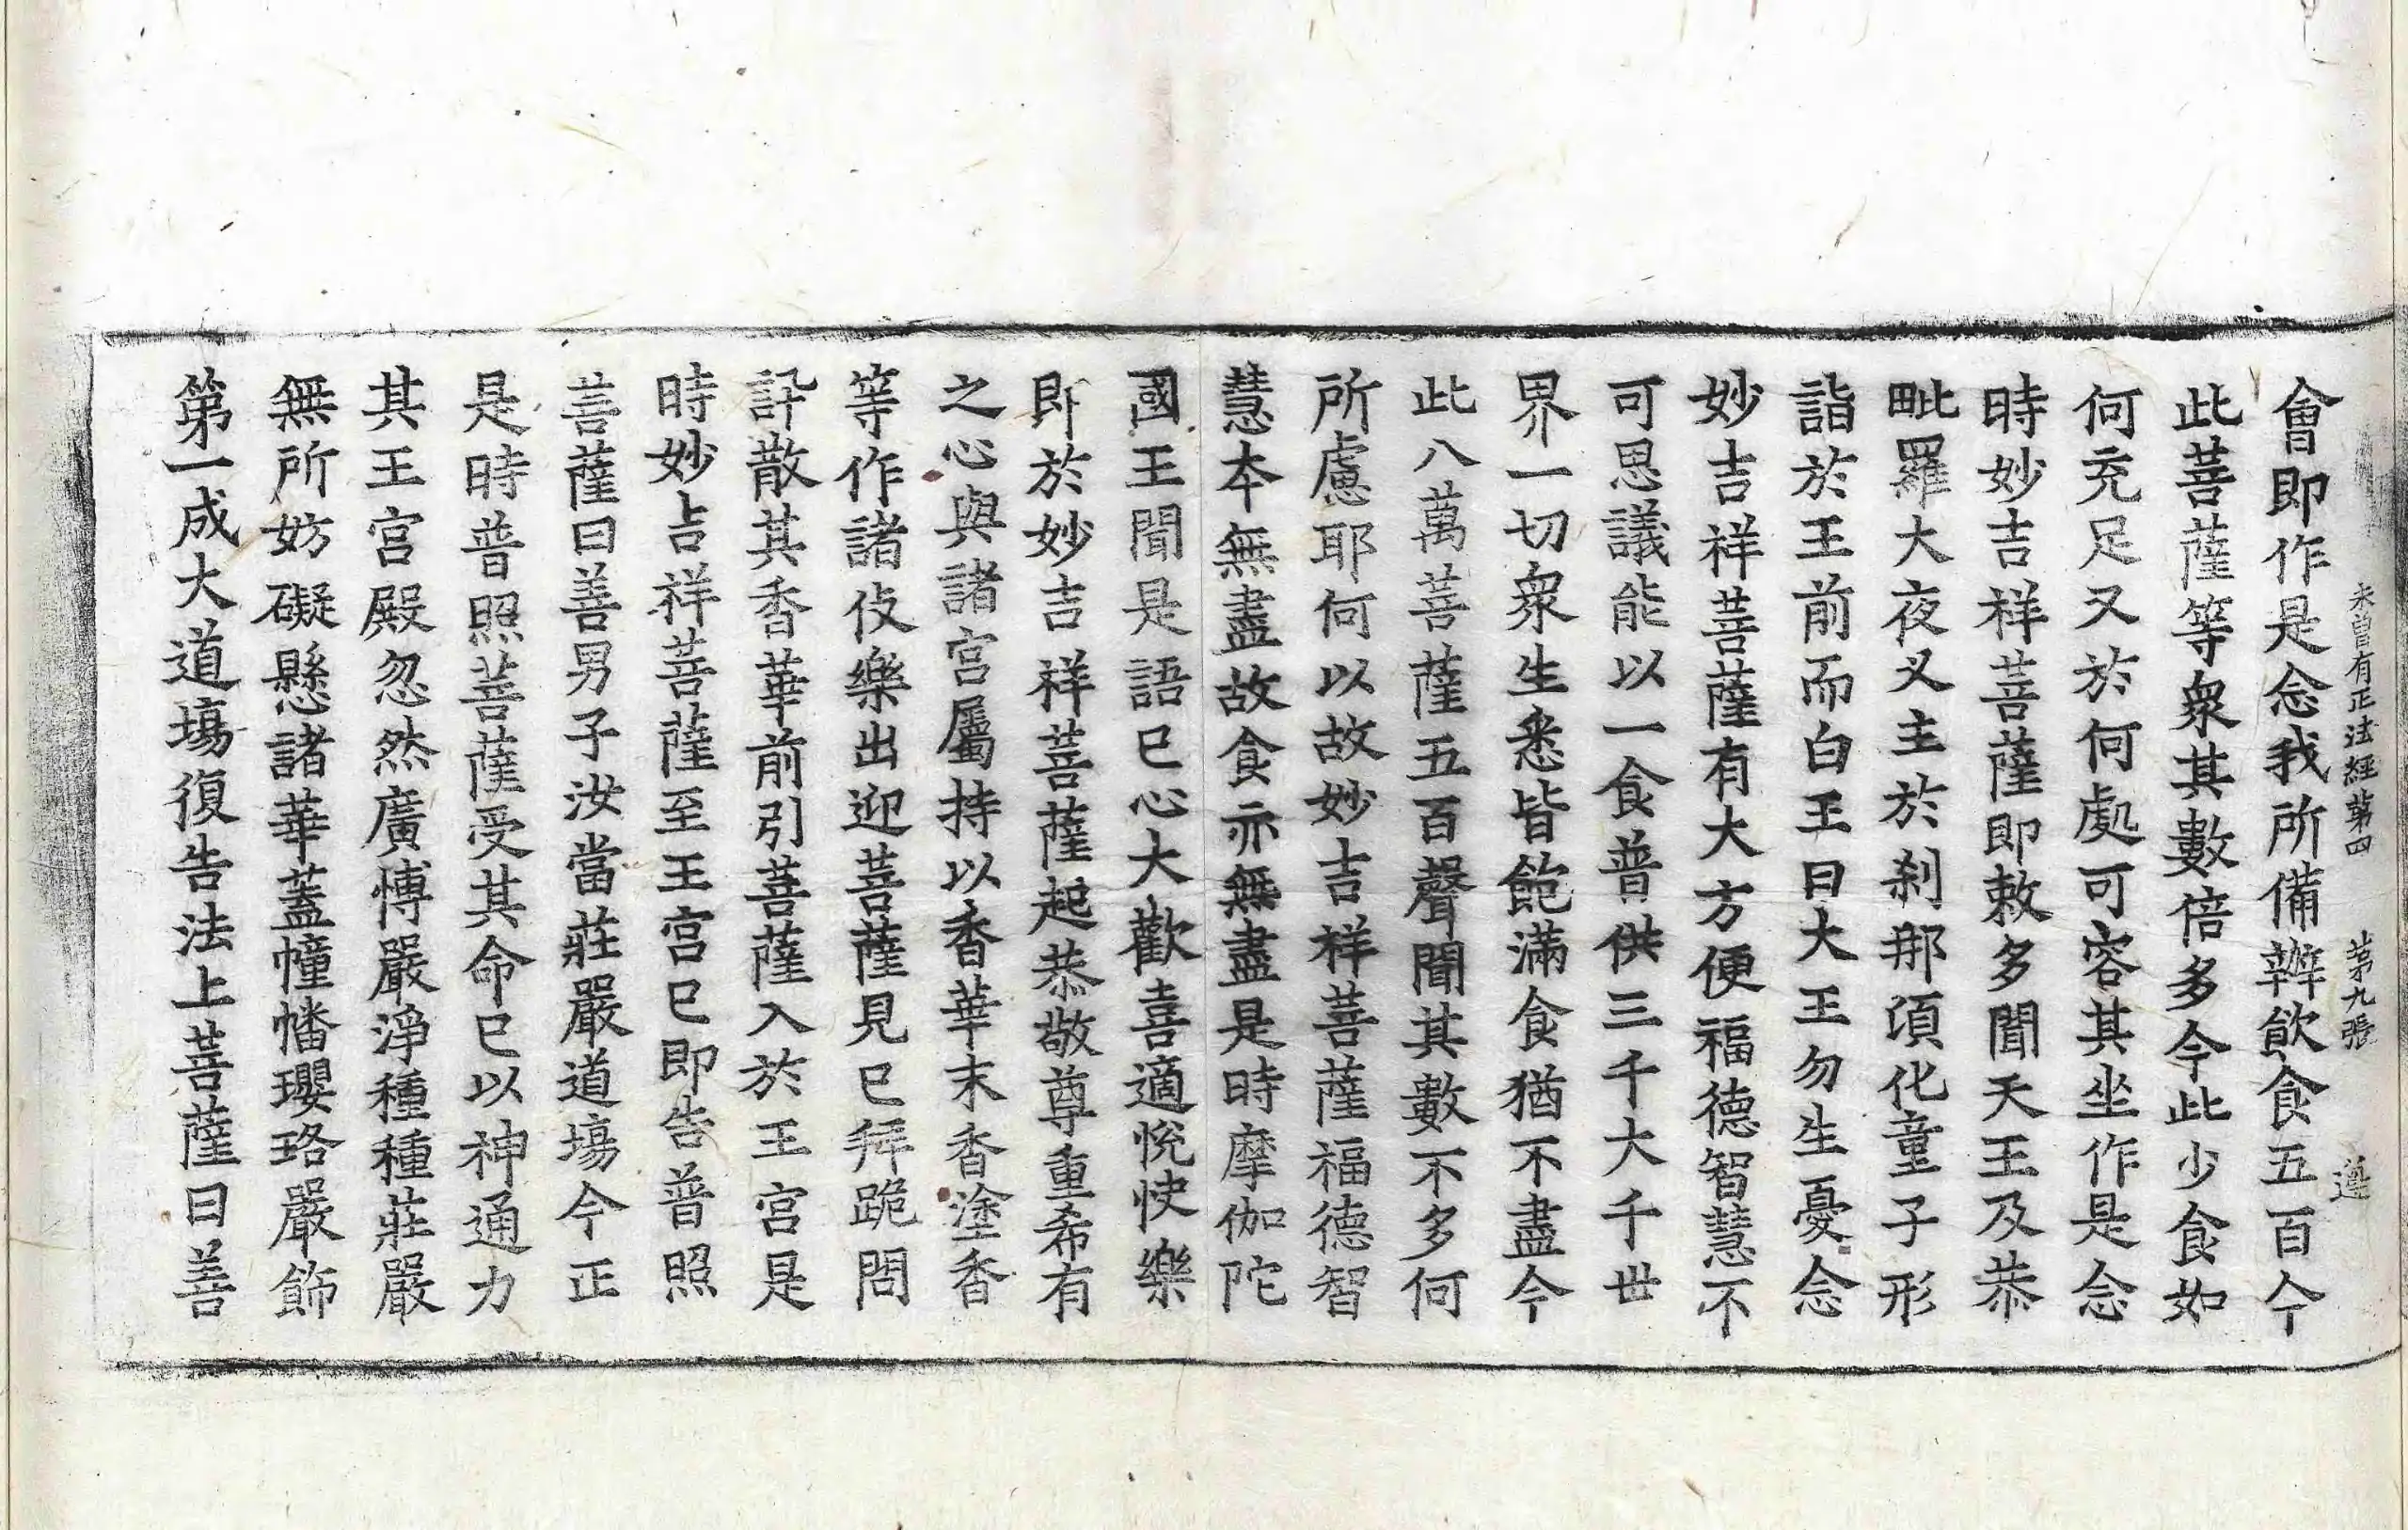 未曾有正法經第四 第九張 遵
會即作是念我所備辦飲食五百今
此菩薩等衆其數倍多今此少食如
何充足又於何處可容其坐作是念
時妙吉祥菩薩即敕多聞天王及恭
毗羅大夜叉主於刹那頃化童子形
詣於王前而白王曰大王勿生憂念
妙吉祥菩薩有大方便福德智慧不
可思議能以一食普供三千大千世
界一切衆生悉皆飽滿食猶不盡今
此八萬菩薩五百聲聞其數不多何
所慮耶何以故妙吉祥菩薩福德智
慧本無盡故食亦無盡是時摩伽陀
國王聞是語已心大歡喜適悅快樂
即於妙吉祥菩薩起恭敬尊重希有
之心與諸宮屬持以香華末香塗香
等作諸伎樂出迎菩薩見已拜跪問
訊散其香華前引菩薩入於王宮是
時妙吉祥菩薩至王宮已即告普照
菩薩曰善男子汝當莊嚴道場今正
是時普照菩薩受其命已以神通力
其王宮殿忽然廣博嚴淨種種莊嚴
無所妨礙懸諸華蓋幢幡瓔珞嚴飾
第一成大道場復告法上菩薩曰善